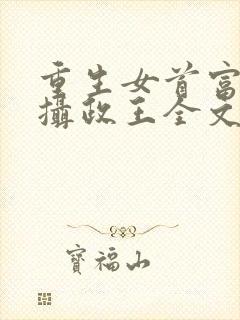 重生女首富
攝政王全文
寶福山